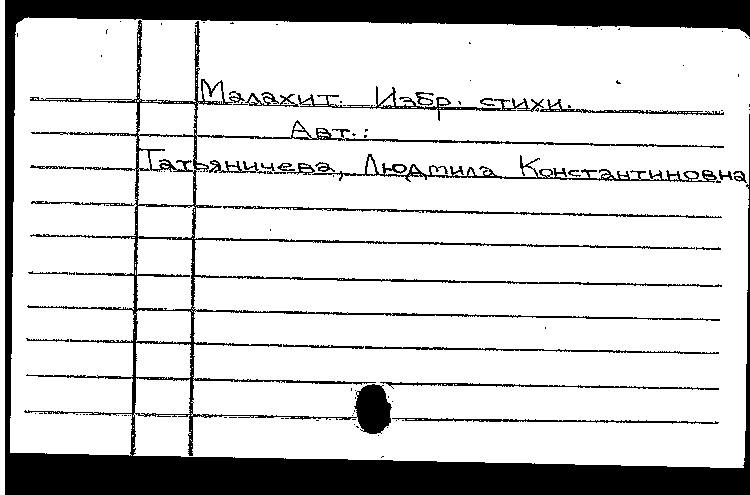 Малахит. Избр. стихи.
Авт.:
Татьяничева, Людмила Константиновна